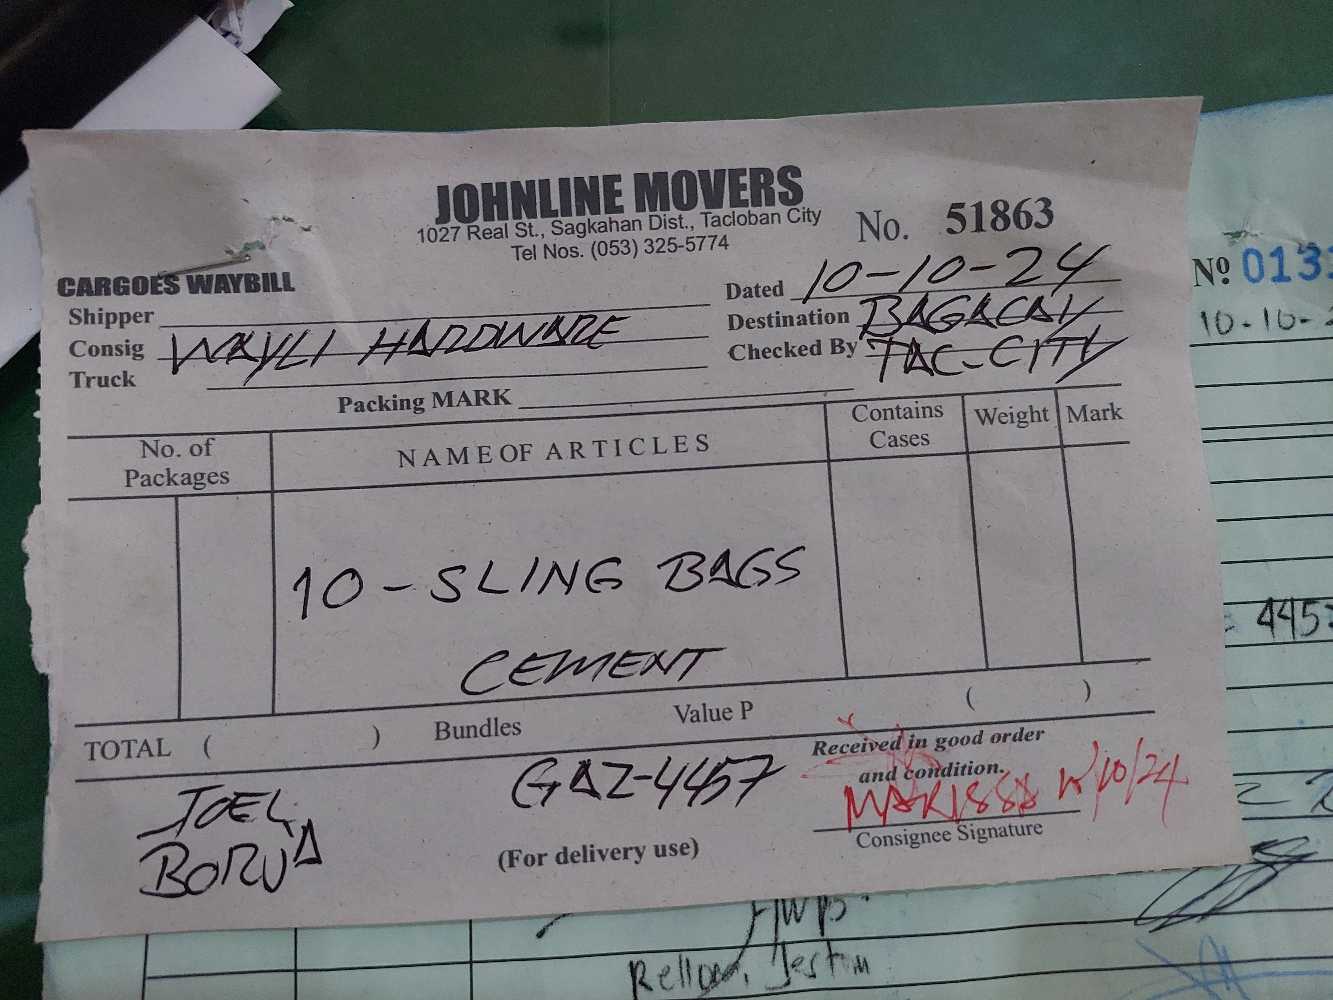 JOHNLINE MOVERS
1027 Real St., Sagkahan Dist., Tacloban City
Tel Nos. (053) 325-5774
No. 51863
CARGOES WAYBILL
Dated 10-10-24
Shipper
Destination BAGACAY
Consig WAYLI HARDWARE
Checked By TAC-CITY
Truck
Packing MARK
No. of Packages
NAME OF ARTICLES
Contains Cases
Weight
Mark
10-SLING BAGS
CEMENT
TOTAL ( ) Bundles Value P ( )
Received in good order
and condition.
MARISSA 10/10/24
Consignee Signature
JOEL
BORJA
GAZ-4457
(For delivery use)
Nº 013
10-10-
445
Jestin